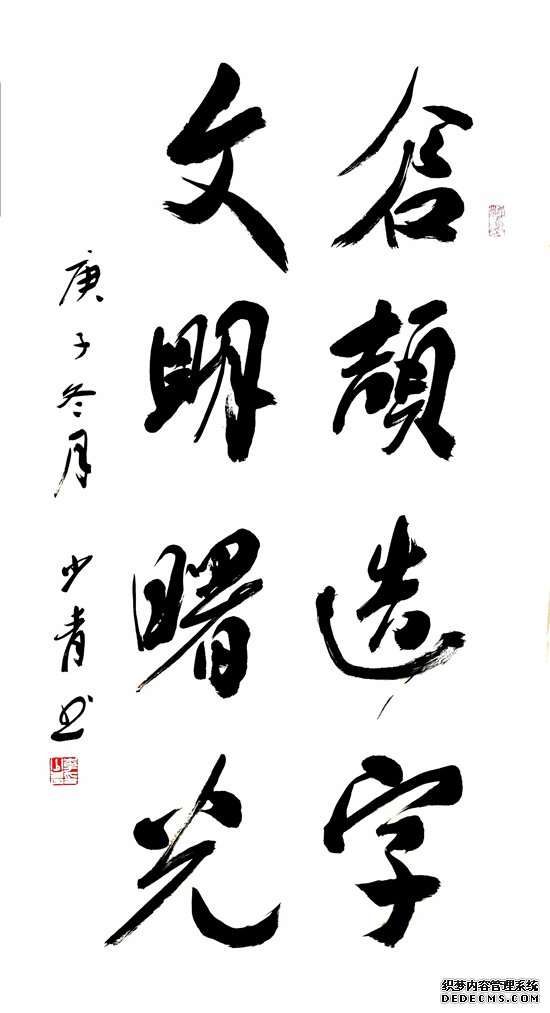 倉頡造字
文明曙光
庚子冬月 少青书
织梦内容管理系统
DEDECMS.COM